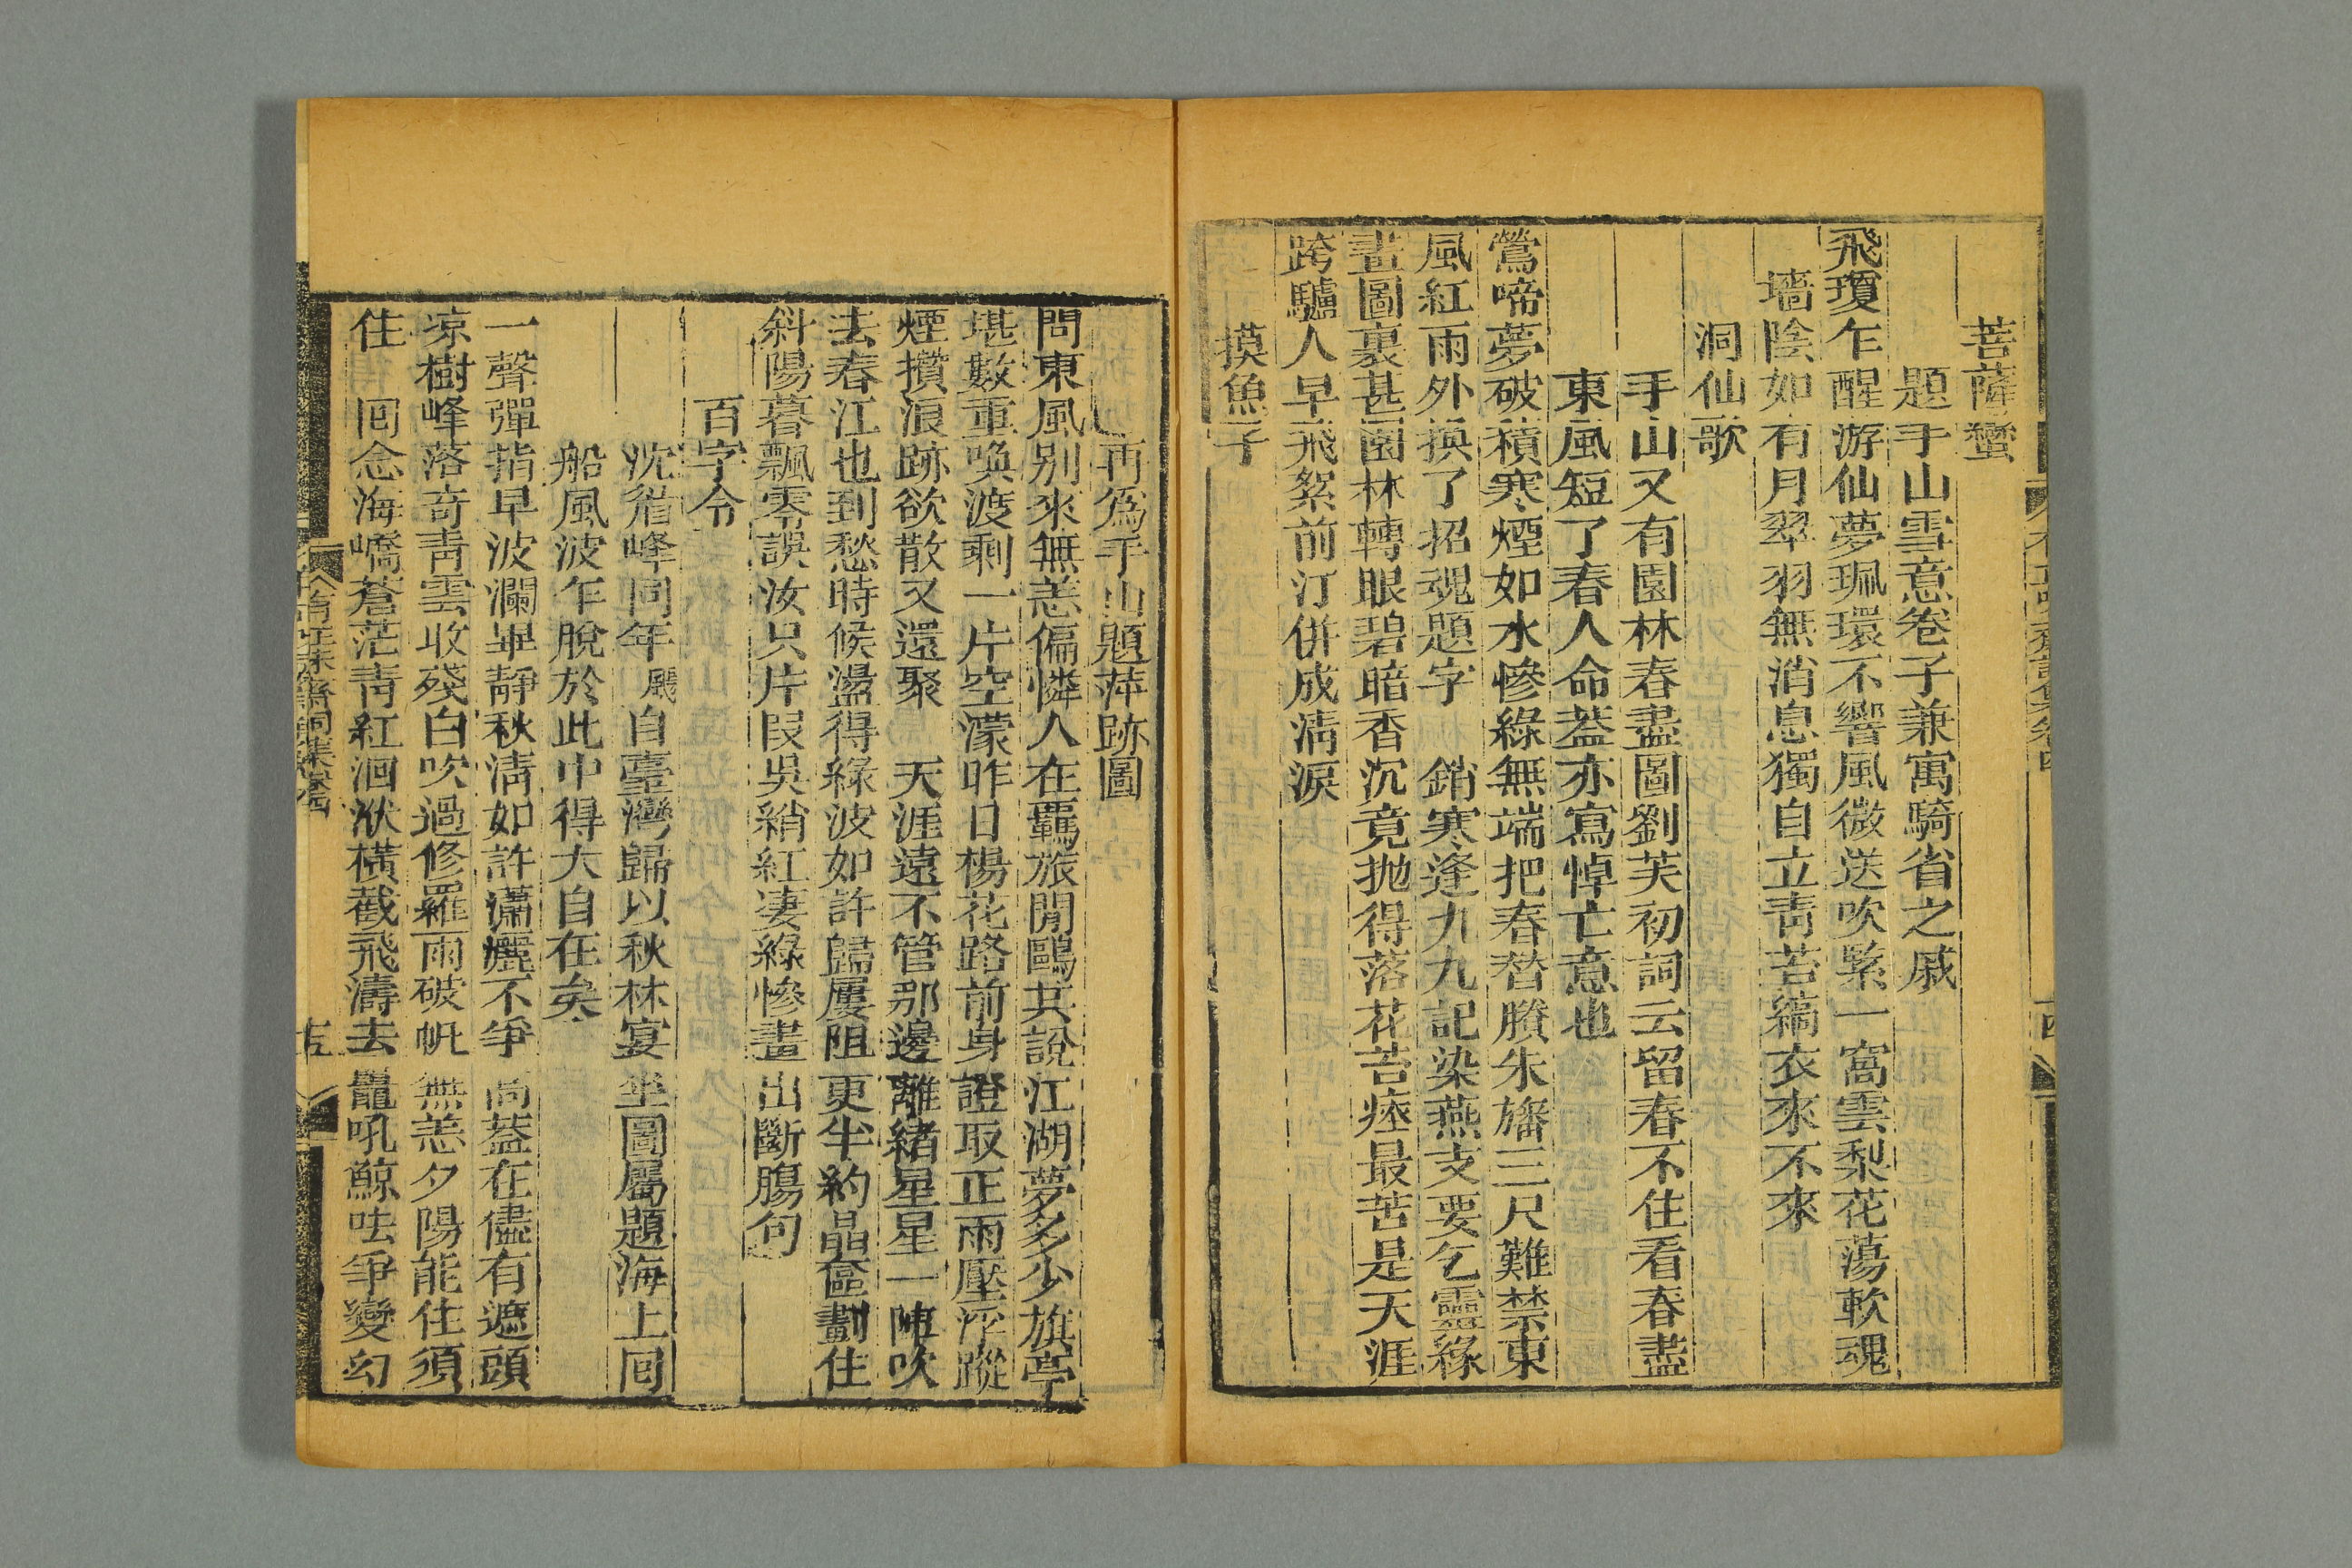 菩薩蠻
題手山雪意卷子兼寓騎省之戚
飛瓊乍醒游仙夢珮環不響風微送吹縏一窩雲梨花蕩軟魂
墻陰如有月翠羽無消息獨自立青苔縞衣來不來
洞仙歌
手山又有園林春盡圖劉芙初詞云留春不住看春盡
東風短了春人命蓋亦寫悼亡意也
鶯啼夢破積寒煙如水慘綠無端把春替賸朱旛三尺難禁東
風紅雨外換了招魂題字　銷寒逢九九記染燕支要乞靈緣
畫圖裏甚園林轉眼碧暗香沉竟拋得落花苦瘞最苦是天涯
跨驢人早飛絮前汀併成淸淚
摸魚子
再爲手山題萍跡圖
問東風别來無恙偏憐人在羈旅閒鷗共說江湖夢多少旗亭
堪數重喚渡剩一片空濛昨日楊花路前身證取正雨壓浮蹤
煙攢浪跡欲散又還聚　天涯遠不管那邊離緒星星一陣吹
去春江也到愁時候盪得綠波如許歸屢阻更半約晶奩劃住
斜陽暮飄零誤汝只片段吳綃紅淒綠慘畫出斷腸句
百字令
沈㳺峰同年 自臺灣歸以秋林宴坐圖屬題海上囘
船風波乍脫於此中得大自在矣
一聲彈指早波瀾畢靜秋淸如許瀟灑不爭尚蓋在儘有遮頭
凉樹峰落奇靑雲收殘白吹過修羅雨破㠶無恙夕陽能住須
住　囘念海嶠蒼茫靑紅洄洑橫截飛濤去鼉吼鯨呿爭變幻